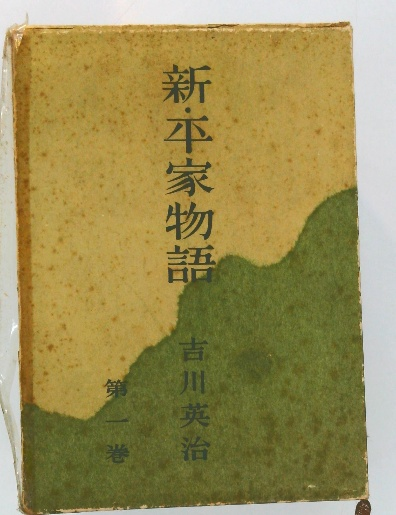 新・平家物語
吉川英治
第一巻